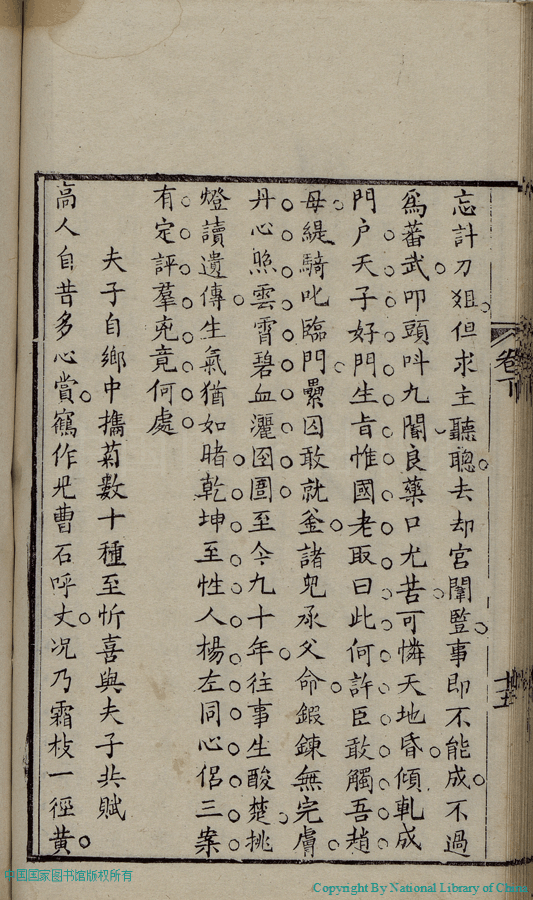 忘計刀俎但求主聽聰去却宮闈豎事即不能成不過
爲蕃武叩頭呌九閽良藥口尤苦可憐天地昏傾軋成
門户天子好門生旨惟國老取曰此何許臣敢觸吾趙
母緹騎叱臨門纍囚敢就釜諸兇承父命鍛鍊無完膚
丹心照雲霄碧血灑囹圄至今九十年往事生酸楚挑
燈讀遺傳生氣猶如睹乾坤至性人楊左同心侣三案
有定評羣兇竟何處
夫子自鄉中攜菊數十種至忻喜與夫子共賦
高人自昔多心賞鶴作兄曹石呼丈况乃霜枝一徑黄
卷下
十五
中国国家图书馆版权所有
Copyright By National Library of China